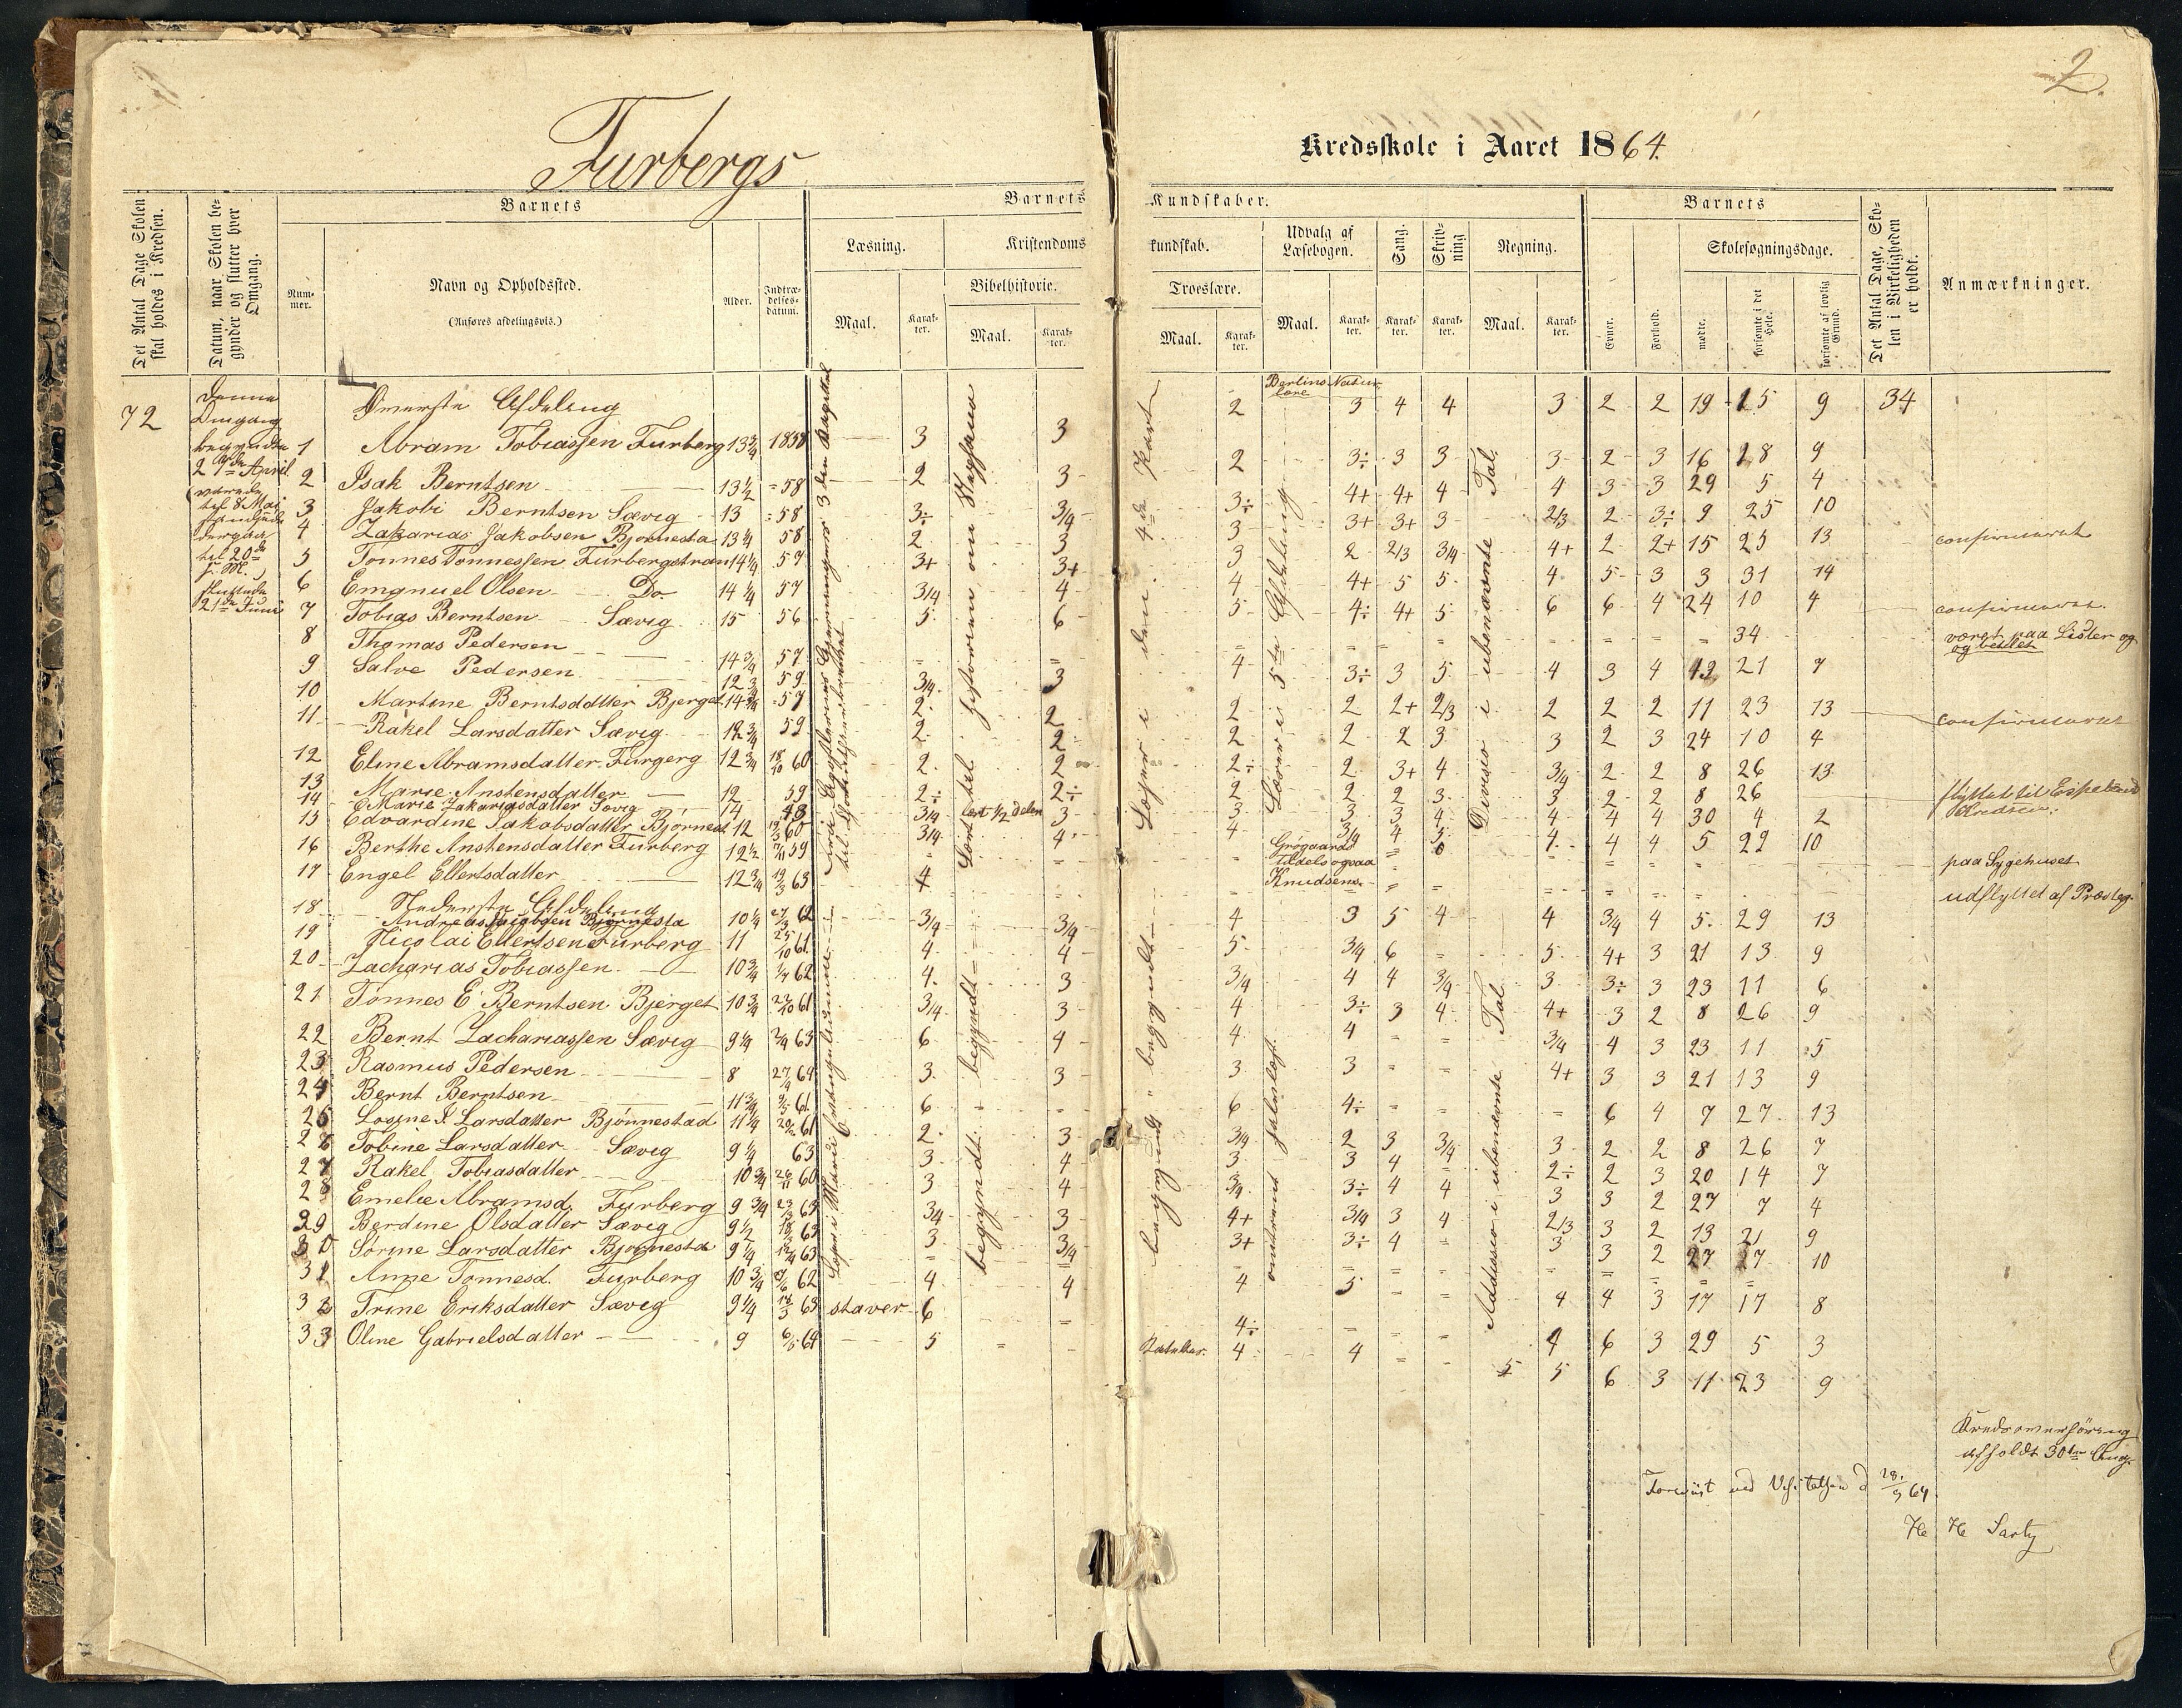 2.
Furbergs
Kredsskole i Aaret 1864.
Det Antal Dage Skolen skal holdes i Kredsen.
Datum, naar Skolen begynder og slutter hver Omgang.
Barnets
Nummer.
Navn og Opholdssted.
(Anføres afdelingsvis.)
Alder.
Indtrædelsesdatum.
Barnets Kundskaber.
Læsning.
Maal.
Karakter.
Kristendomskundskab.
Bibelhistorie.
Maal.
Karakter.
Troeslære.
Maal.
Karakter.
Udvalg af Læsebogen.
Maal.
Karakter.
Sang.
Karakter.
Skrivning
Karakter.
Regning.
Maal.
Karakter.
Barnets
Evner.
Forhold.
Skolesøgningsdage.
mødte.
forsømte i det Hele.
forsømte af lovlig Grund.
Det Antal Dage, Skolen i Virkeligheden er holdt.
Anmærkninger.
72
Denne
Omgang
begyndte
2 April
til 8 Mai
til 20de
21de Juni
Øverste Afdeling
1 Abram Tobiassen Furberg 13 3/4 1858 3 3
2 Isak Berntsen 13 1/2 58 2 3
3 Jakobi Berntsen Sævig 13 58 3÷ 3/4
4 Zakarias Jakobsen Bjørnesta 13 1/4 58 2 3
5 Tønnes Tønnessen Furbergstran 14 1/4 57 3+ 3+
6 Emanuel Olsen Do 14 1/4 57 3/4 4
7 Tobias Berntsen Sævig 15 56 5 6
8 Thomas Pedersen 14 3/4 57 = =
9 Salve Pedersen 12 3/4 59 3/4 3
10 Martine Berntsdatter Bjerget 14 3/4 57 2 2
11 Rakel Larsdatter Sævig 12 3/4 59 2 2
12 Eline Abramsdatter Furgerg 12 3/4 18/10 60 2 2
13 Marie Anstensdatter 12 59 2÷ 2÷
14 E Marie Zakariasdatter Sævig 14 3/4 3
15 Edvardine Jakobsdatter Bjørnest 12 60 3/4 4
16 Berthe Anstensdatter Furberg 12 1/2 59 =
17 Engel Ellertsdatter 12 3/4 19/3 63 4
Nederste Afdeling
18 Andreas Jacobsen Bjørnesta 10 1/4 27/3 62 3/4 3/4
19 Nicolai Ellertsen Furberg 11 25/10 61 4 4
20 Zacharias Tobiassen 10 3/4 62 4 3
21 Tønnes E Berntsen Bjerget 10 3/4 61 3/4 3
22 Bernt Zachariassen Sævig 9 1/4 63 6 4
23 Rasmus Pedersen 8 64 3 3
24 Bernt Berntsen 11 3/4 61 6
25 Losine I Larsdatter Bjønnestad 11 1/4 61 2 3
26 Tobine Larsdatter Sævig 9 1/4 63 3 4
27 Rakel Tobiasdatter 10 3/4 60 3 4
28 Emelie Abramsd. Furberg 9 3/4 3/4 3
29 Berdine Olsdatter Sævig 9 1/2 63 3 3/4
30 Sørine Larsdatter Bjørnesta 9 1/4 63 = =
31 Anne Tønnesd. Furberg 10 3/4 62 4 4
32 Trine Eriksdatter Sævig 9 1/4 63 staver 6
33 Oline Gabrielsdatter 9 64 5
lært 1/2 delen
begyndt
begyndt
Læser i den 4de Part
begyndt
begyndt
Berlins Naturlære
Læser i 5te Afdeling
Grøgaards
Knudsens
omtrent
Divisio i ubenævnte Tal.
Addissio i ubenævnte Tal
2 3 4 4 3 2 2 19 15 9 34
2 3÷ 3 3 3 2 3 16 18 9
3÷ 4+ 4+ 4 4 3 3 29 5 4
3 3+ 3+ 3 2/3 2 3÷ 9 25 10
3 2 2/3 3/4 4+ 2 2+ 15 25 13 confirmeret
4 4+ 5 5 4 5 3 3 31 14
5 4÷ 4+ 5 6 6 4 24 10 4 confirmeret.
= = = = = = = = 34 været paa Lister og
og betlet
4 3÷ 3 5 4 3 4 13 21 7
2 2 2+ 2/3 2 2 2 11 23 13 confirmeret
2 2 2 3 3 2 3 24 10 4
2÷ 2 3+ 4 3/4 2 2 8 26 13
2 2 2 3 3 2 2 8 26 flyttet til Espeland
Kredsen.
3 3 3 4 4 4 4 30 4 2
4 3/4 4 5 4 4 4 5 22 10
paa Sygehuset
udflyttet af Præsteg.
4 3 5 4 4 3/4 4 5 29 13
5 3/4 6 = 5 4+ 3 21 13 9
3/4 4 4 3/4 3 3÷ 3 23 11 6
4 3÷ 3 4 4+ 3 2 8 26 9
4 4 = = 3/4 4 3 23 11 5
3 3 = 4+ 3 3 21 13 9
6 4÷ = = = 6 4 7 27 13
3/4 2 3 3/4 3 2 2 8 26 7
3 3 4 = 2÷ 2 3 20 14 7
3/4 3÷ 4 4 3 3 2 27 7 4
4+ 3/4 3 4 2/3 3 2 13 21 9
3+ 3÷ 4 = 3 3 2 27 17 10
4 5 = = 4 4 3 17 17 8
4÷ = = = 4 6 3 29 5 3
4 4 = 5 5 6 3 11 23 9
Kredsoverhøring
afholdt 30te Aug.
Foreviist ved Visitatsen d 28/9 64